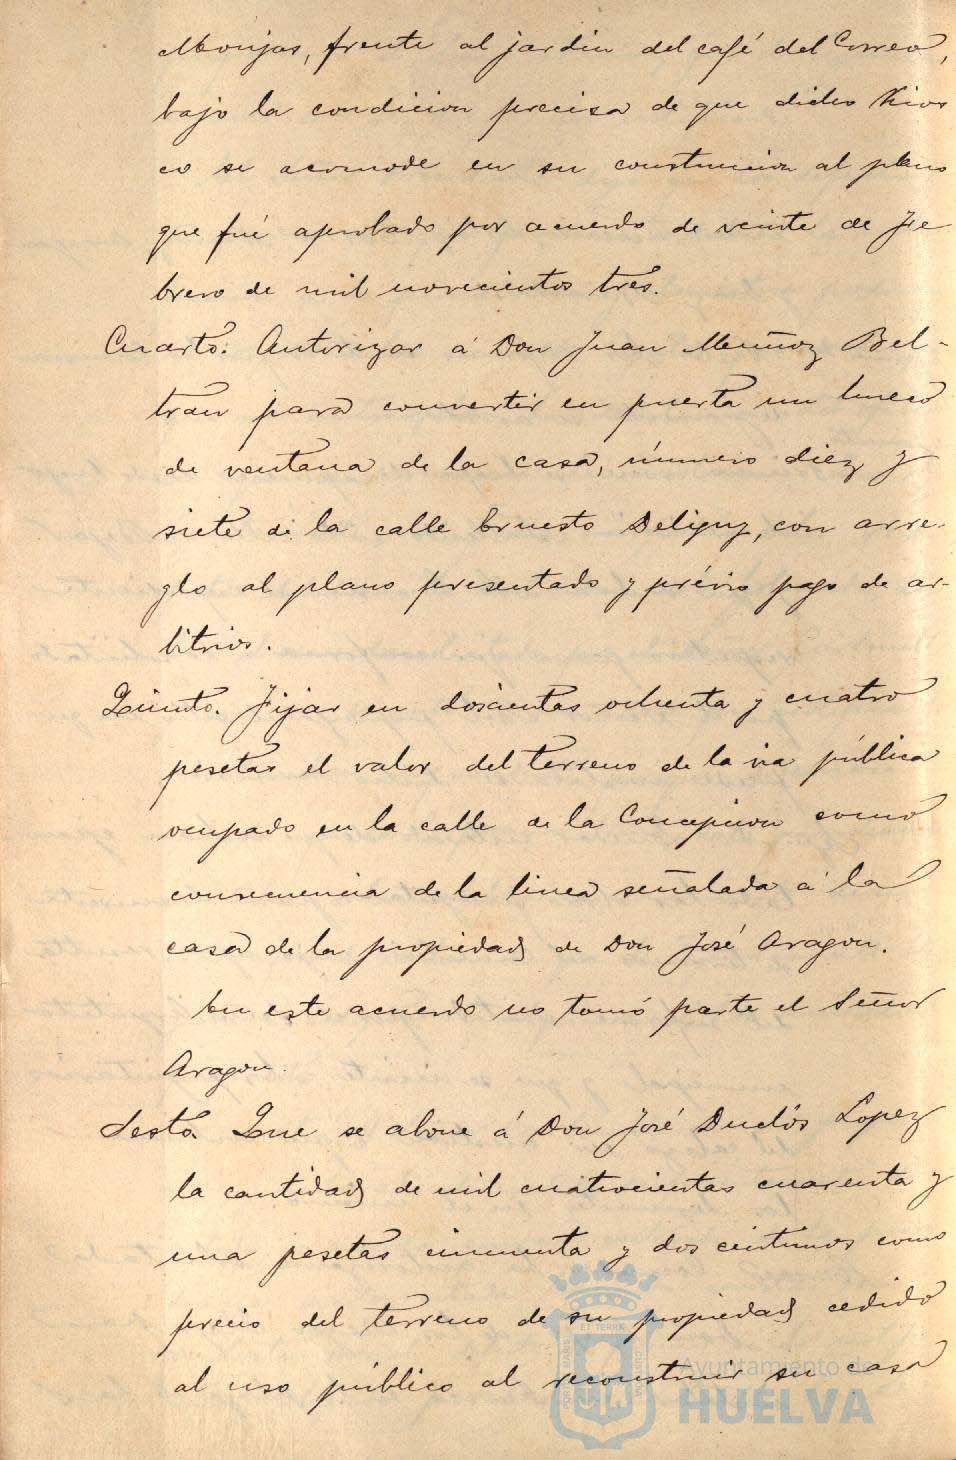 Monjas, frente al jardin del café del Correo,
bajo la condicion precisa de que dicho Kios
co se acomode en su construccion al plano
que fué aprobado por acuerdo de veinte de Fe
brero de mil novecientos tres.
Cuarto. Autorizar á Don Juan Muñoz Bel-
trán para convertir en puerta un hueco
de ventana de la casa, número diez y
siete de la calle Ernesto Deligny, con arre-
glo al plano presentado y prévio pago de ar-
bitrios.
Quinto. Fijar en doscientas ochenta y cuatro
pesetas el valor del terreno de la via pública
ocupado en la calle de la Concepcion como
consecuencia de la linea señalada á la
casa de la propiedad de Don José Aragon.
En este acuerdo no tomó parte el Señor
Aragon.
Sesto. Que se abone á Don José Duclós Lopez
la cantidad de mil cuatrocientas cuarenta y
una pesetas cincuenta y dos céntimos como
precio del terreno de su propiedad cedido
al uso público al reconstruir su casa
Ayuntamiento de
HUELVA